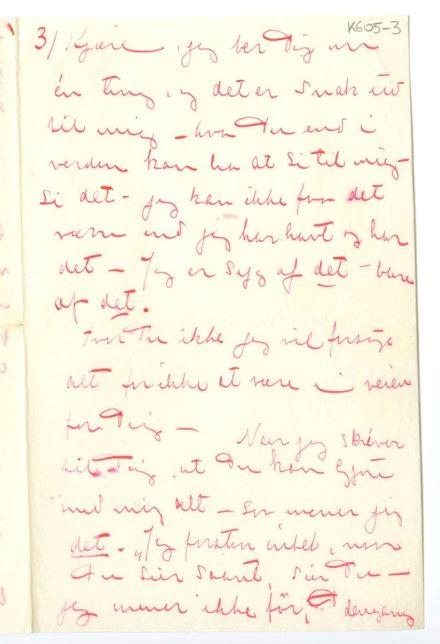 K605-3
3/ Kjære, jeg ber Dig om
én ting, og det er snak ud
til mig – hva Du end i
verden kan ha at si til mig –
si det – jeg kan ikke faa det
værre end jeg har havt og har
det – Jeg er syg af det – bare
af det.
Tror Du ikke jeg vil forsøge
alt for ikke at være i veien
for Dig – Naar jeg skriver
til Dig, at Du kan gjøre
med mig alt – saa mener jeg
det. „Jeg forstaar intet, naar
Du sier saant, sier Du –
jeg mener ikke før, dengang